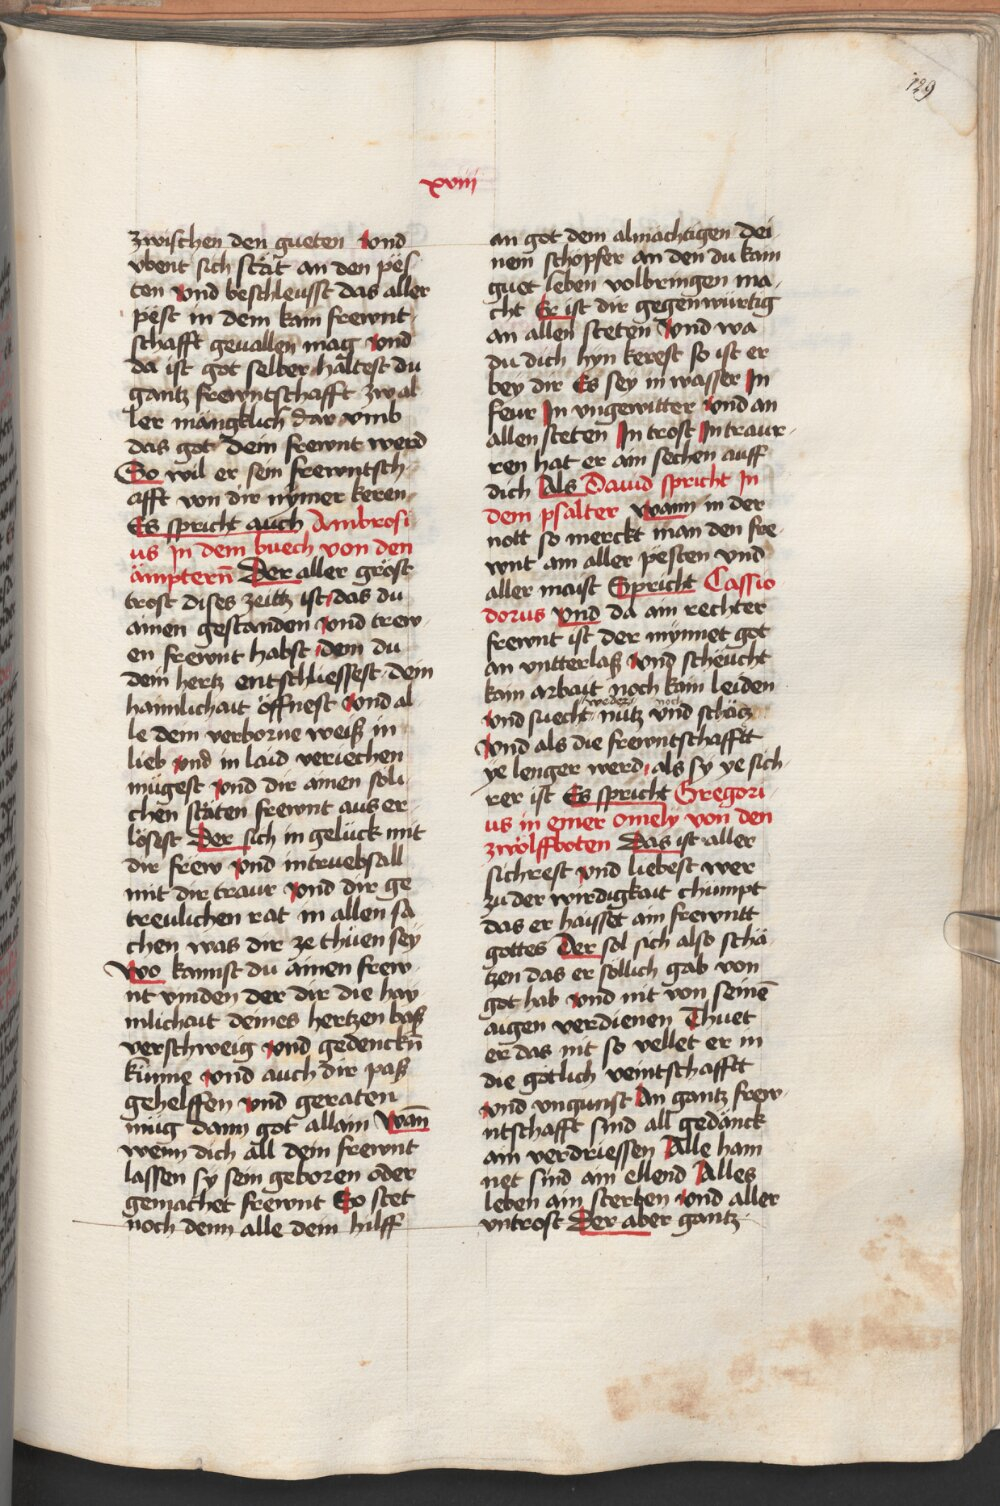 129
xviij
zwischen den gueten vnd
vbent sich stät an den pës
ten vnd beschleusst das aller
pëst in dem kain frewnt
schafft geuallen mag vnd
da ist got selber hältest du
gantz frewntschafft zw al
ler mängklich dar vmb
das got dein frewnt werd
So wil er sein frewntsch
afft von dir nÿmer keren
Es spricht auch Ambrosi
us in dem buech von den
ämptern̄ Der aller gröst
trost dises zeittz ist das du
ainen gestanden vnd trew
en frewnt habst dem du
dein hertz entschliessest dein
haimlichait öffnest vnd al
le dein verborne weiß in
lieb vnd in laid veriechen
mügest vnd dir ainen söli
chen stäten frewnt aus er
lösest Der sich in gelück mit
dir frew vnd in truebsall
mit dir traur vnd dir ge
treulichen rat in allen sa
chen was dir ze thüen seÿ
Wo kannst du ainen frew
nt vinden der dir die hay
mlichait deines hertzen baß
verschweig vnd gedenckn̄
künne vnd auch dir paß
gehelffen vnd geraten
müg dann got allain Wan̄
wenn dich all dein frewnt
lassen sÿ sein geboren oder
gemachet frewnt So stet
noch denn alle dein hilff
an got dem almächtigen dei
nem schopfer an den du kain
guet leben volbringen ma
cht Er ist dir gegenwürtig
an allen steten vnd wa
du dich hyn kerest so ist er
bey dir Es sey in wasser In
feur In vngewitter vnd an
allen steten In trost In traur
ren hat er ain sechen auff
dich Als Dauid spricht In
dem psalter Wann in der
nott so merckt man den fre
wnt am aller pesten vnd
aller maist Spricht Cassio
dorus Vnd da ain rechter
frewnt ist der mynnet got
an vntterlaß vnd scheucht
kain arbait noch kain leiden
weder noch
vnd suecht nutz vnd schatz
Vnd als die frewntschafft
ye lenger werd als sy ye sich
rer ist Es spricht Gregori
us in einer omely von den
zwölffboten Das ist aller
sichrest vnd liebest wer
zu der wirdigkait chümpt
das er haisset ain frewntt
gottes Der sol sich also schä
tzen das er söllich gab von
got hab vnd nit von seinē
aigen verdienen Thuet
er das nit so vellet er in
die götlich veintschafft
vnd vngunst An gantz frew
ntschafft sind all gedänck
ain verdriessen Alle ham
net sind ain ellend Alles
leben ain sterben vnd aller
vntrost Der aber gantz